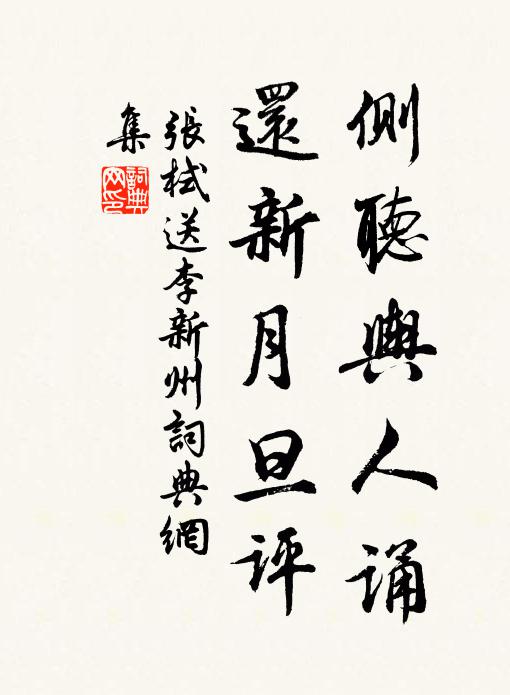 側聽輿人誦
還新月旦評
張栻送李新州詞典網
集
詞典网印